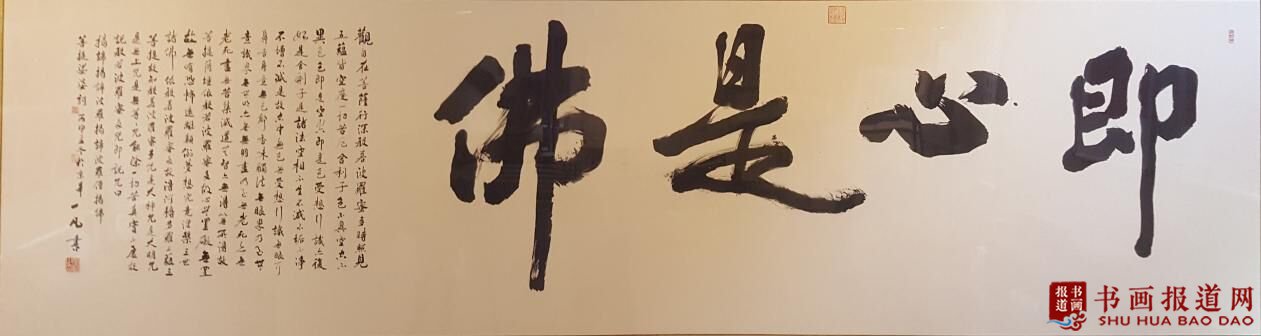 即心是佛
觀自在菩薩行深般若波羅蜜多時照見
五蘊皆空度一切苦厄舍利子色不異空空不
異色色即是空空即是色受想行識亦復
如是舍利子是諸法空相不生不滅不垢不淨
不增不減是故空中無色無受想行識無眼耳
鼻舌身意無色聲香味觸法無眼界乃至無
意識界無無明亦無無明盡乃至無老死亦無
老死盡無苦集滅道無智亦無得以無所得故
菩提薩埵依般若波羅蜜多故心無罣礙無罣
故無有恐怖遠離顛倒夢想究竟涅槃三世
諸佛依般若波羅蜜多故得阿耨多羅三藐三
菩提故知般若波羅蜜多咒是大神咒是大明咒
是無上咒是無等等咒能除一切苦真實不虛故
說般若波羅蜜多咒即說咒曰
揭諦揭諦波羅揭諦波羅僧揭諦
菩提娑婆訶 丙申 冬於京華 一凡書
书画报道
书画报道网
SHU HUA BAO DAO